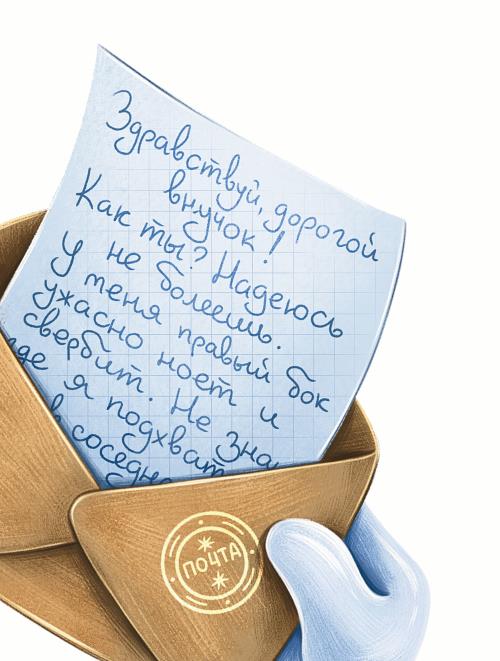 Здравствуй, дорогой
внучок!
Как ты? Надеюсь
не болеешь.
У меня правый бок
ужасно ноет и
свербит. Не
я подхват
соседн
ПОЧТА